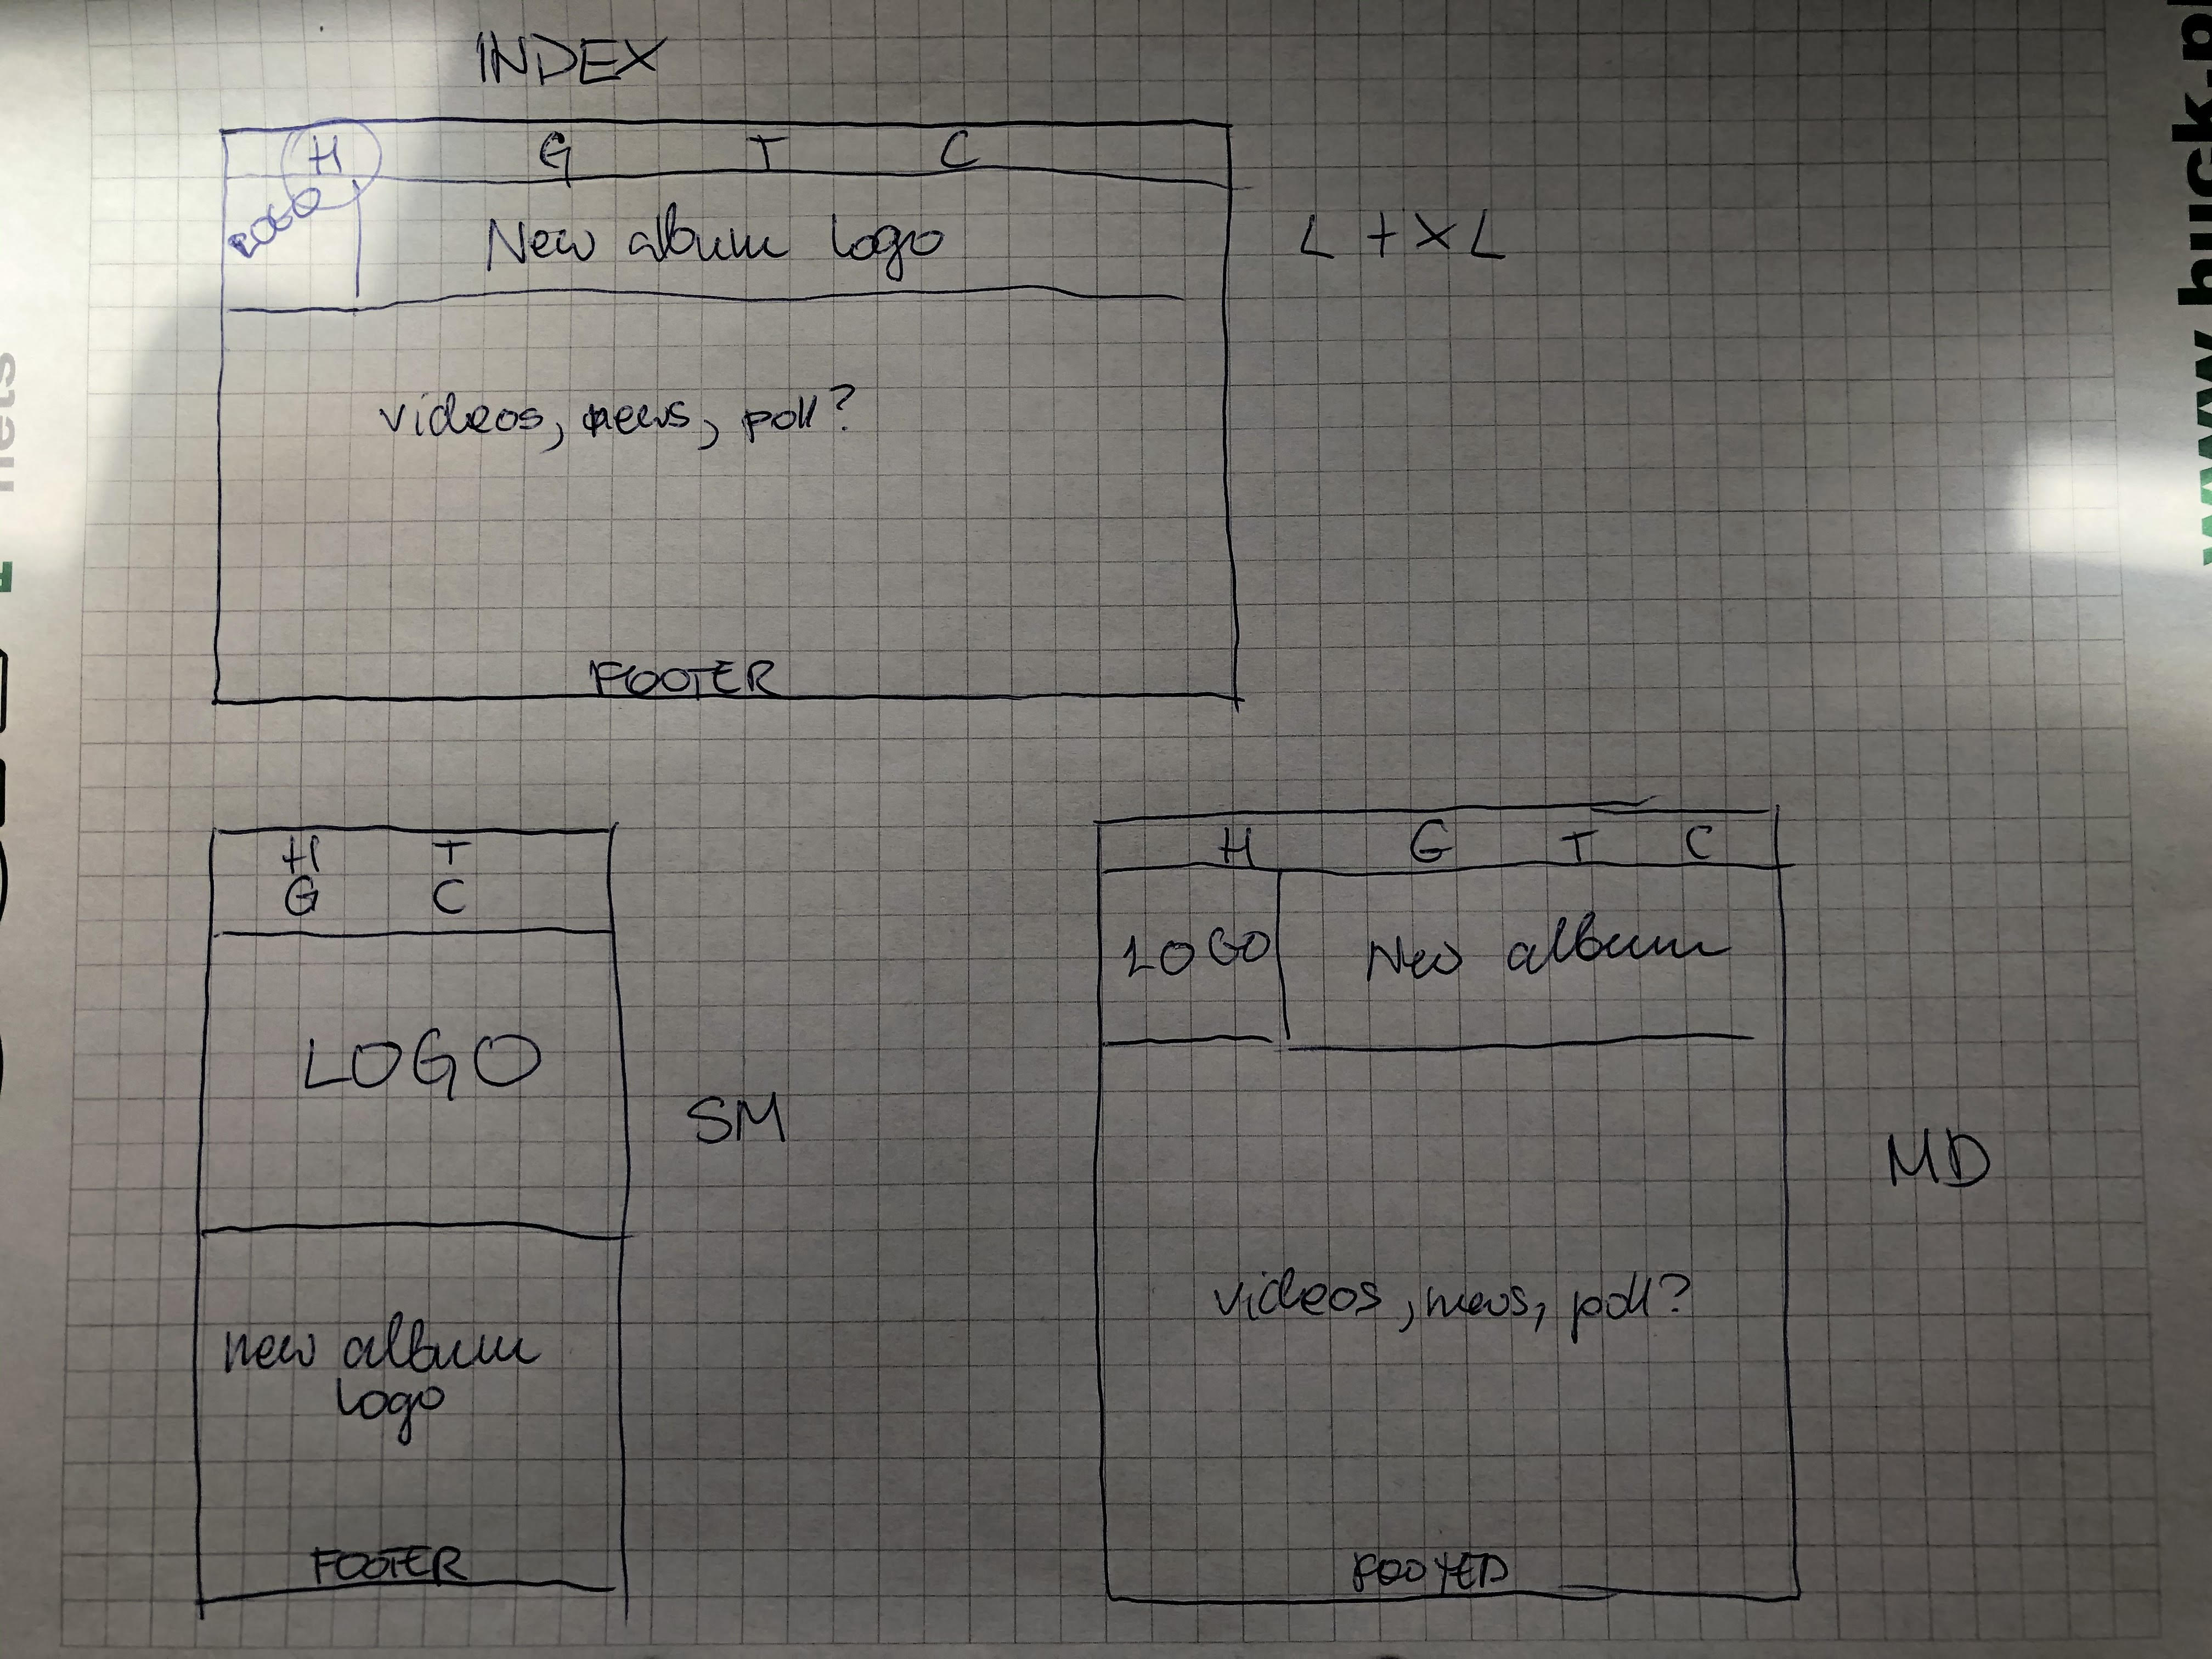 INDEX
H G T C
LOGO
New album logo
L + XL
videos, news, poll?
FOOTER
H T
G C
LOGO
SM
new album
logo
FOOTER
H G T C
LOGO New album
MD
videos, news, poll?
www.huck.pl
nets